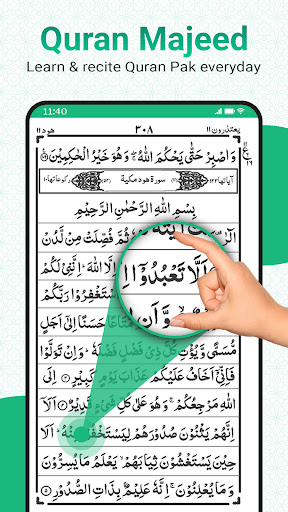 Quran Majeed
Learn & recite Quran Pak everyday
11:40
يعتذرون ١١ ٣٠٨ هود ١١
وَاصْبِرْ حَتّٰى يَحْكُمَ اللّٰهُ ۚ وَهُوَ خَيْرُ الْحٰكِمِيْنَ
اٰياتها ١٢٣ سورة هود مكية ركوعاتها ١٠
بِسْمِ اللّٰهِ الرَّحْمٰنِ الرَّحِيْمِ
ثُمَّ فُصِّلَتْ مِنْ لَّدُنْ
اَلَّا تَعْبُدُوْٓا
اللّٰهَ ؕ اِنَّنِيْ لَكُمْ
وَّاَنِ
اسْتَغْفِرُوْا رَبَّكُمْ
مَّتَاعًا حَسَنًا اِلٰٓى اَجَلٍ
مُّسَمًّى وَّيُؤْتِ كُلَّ ذِيْ فَضْلٍ فَضْلَهٗ ؕ وَاِنْ تَوَلَّوْا
فَاِنِّيْٓ اَخَافُ عَلَيْكُمْ عَذَابَ يَوْمٍ كَبِيْرٍ
اِلَى اللّٰهِ مَرْجِعُكُمْ ۚ وَهُوَ عَلٰى كُلِّ شَيْءٍ قَدِيْرٌ
اَلَآ اِنَّهُمْ يَثْنُوْنَ صُدُوْرَهُمْ لِيَسْتَخْفُوْا مِنْهُ ؕ اَلَا
حِيْنَ يَسْتَغْشُوْنَ ثِيَابَهُمْ ۙ يَعْلَمُ مَا يُسِرُّوْنَ
وَمَا يُعْلِنُوْنَ ۚ اِنَّهٗ عَلِيْمٌۢ بِذَاتِ الصُّدُوْرِ